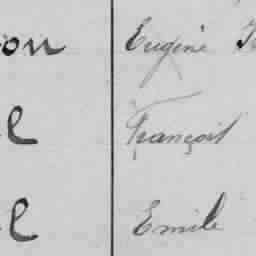 on Eugène
l François
l Emile